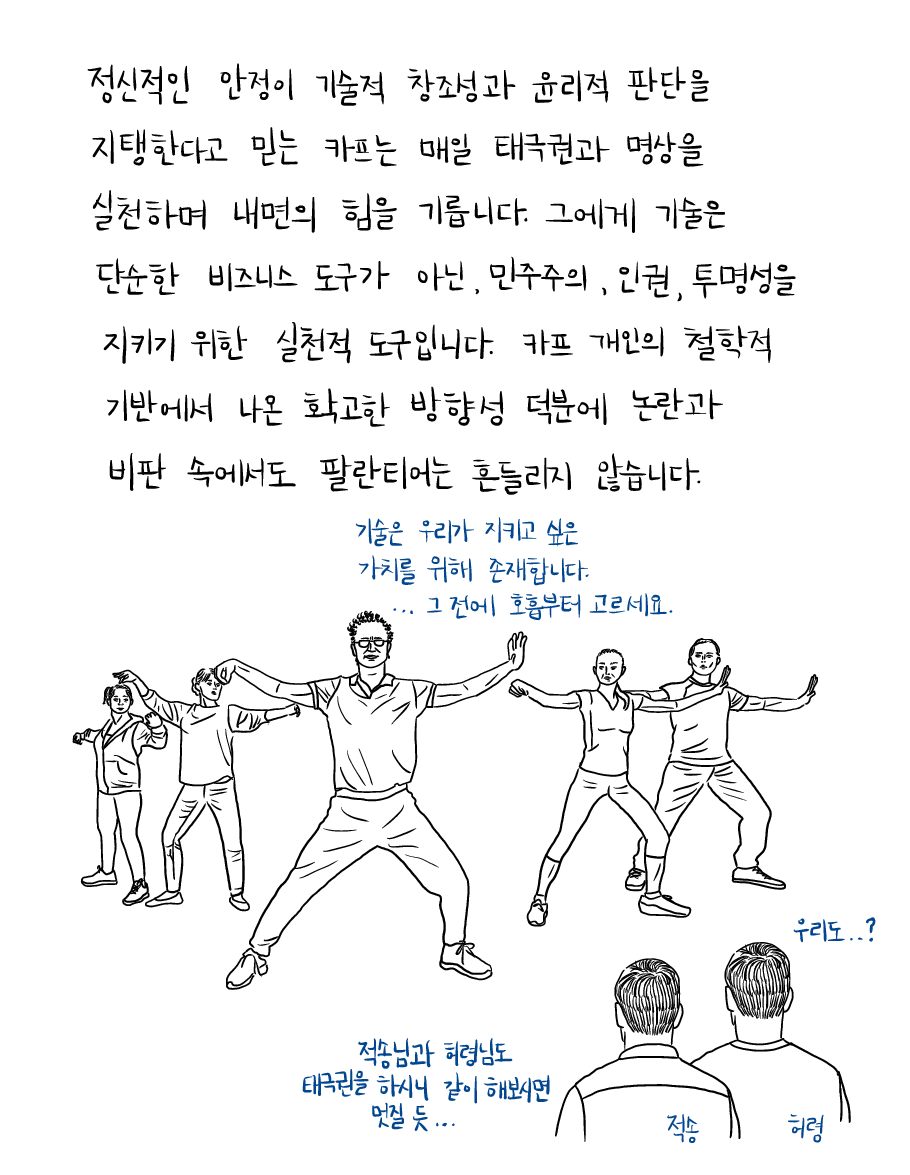 정신적인 안정이 기술적 창조성과 윤리적 판단을
지탱한다고 믿는 카프는 매일 태극권과 명상을
실천하며 내면의 힘을 기릅니다. 그에게 기술은
단순한 비즈니스 도구가 아닌, 민주주의, 인권, 투명성을
지키기 위한 실천적 도구입니다. 카프 개인의 철학적
기반에서 나온 확고한 방향성 덕분에 논란과
비판 속에서도 팔란티어는 흔들리지 않습니다.
기술은 우리가 지키고 싶은
가치를 위해 존재합니다.
... 그 전에 호흡부터 고르세요.
우리도..?
적송님과 허령님도
태극권을 하시니 같이 해보시면
멋질 듯...
적송
허령